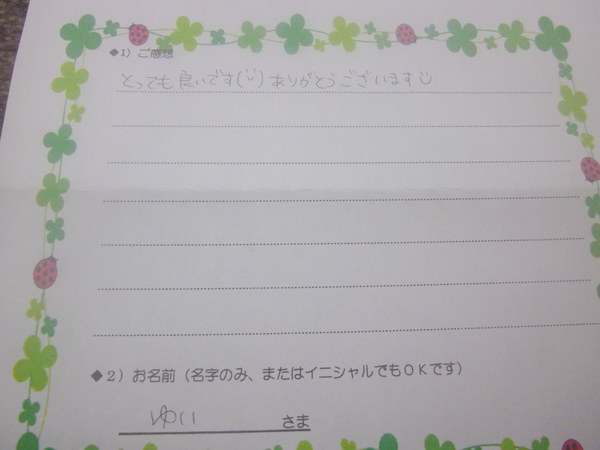 ◆1）ご感想
とっても良いです(¨)ありがとうございます
◆2）お名前（名字のみ、またはイニシャルでもＯＫです）
ゆい さま